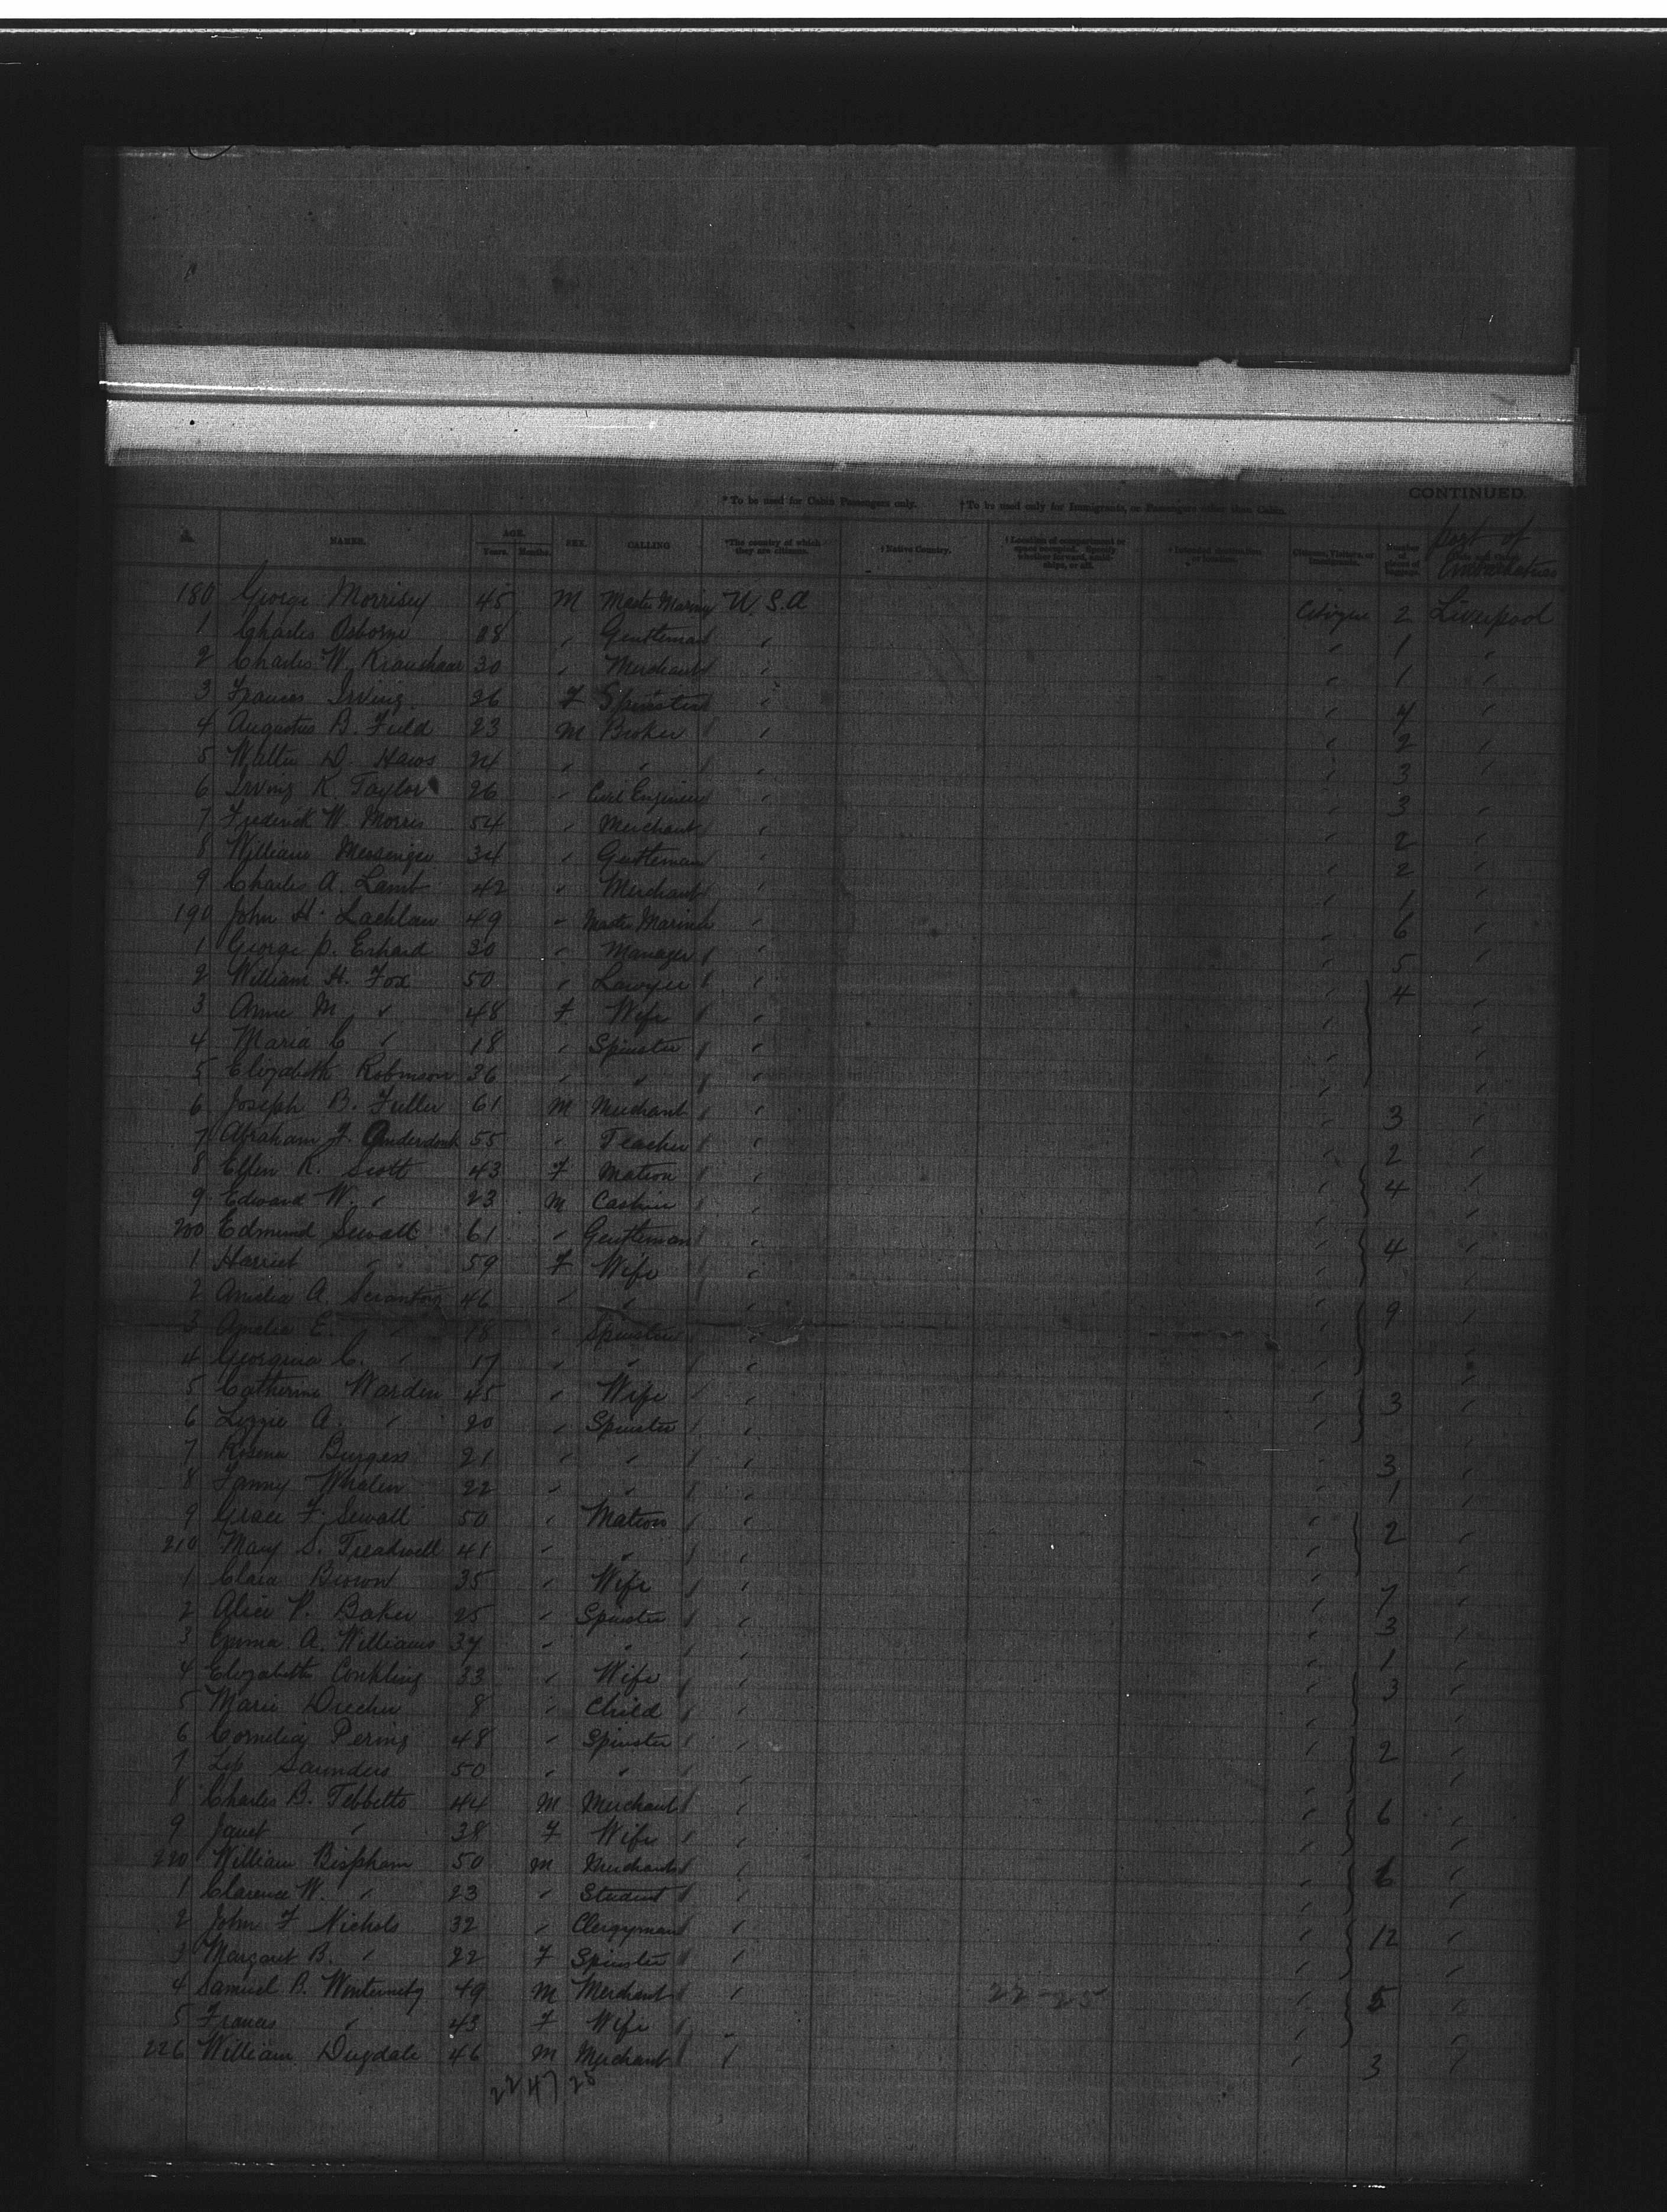 CONTINUED.
* To be used for Cabin Passengers only. † To be used only for Immigrants, or Passengers other than Cabin.
NAMES. AGE. Years. Months. SEX. CALLING *The country of which they are citizens. † Native Country. † Intended destination or location. Citizens, Visitors, or Immigrants. Number of pieces of baggage. Port of Embarkation
180 George Morrisey 45 M Master Mariner U.S.A Citizen 2 Liverpool
1 Charles Osborne 28 " Gentleman " " 1 "
2 Charles W. Kraushaar 30 " Merchant " " 1 "
3 Frances Irving 26 F Spinster " " 4 "
4 Augustus B. Field 23 M Broker " " 2 "
5 Walter D. Haws 24 " " " " 3 "
6 Irving K. Taylor 26 " Civil Engineer " " 3 "
7 Frederick W. Morris 54 " Merchant " " 2 "
8 William Messenger 34 " Gentleman " " 2 "
9 Charles A. Lamb 42 " Merchant " " 1 "
190 John H. Lachlan 49 " Master Mariner " " 6 "
1 George P. Erhard 30 " Manager " " 5 "
2 William H. Fox 50 " Lawyer " " 4 "
3 Anne M. " 48 F Wife " " "
4 Maria C " 18 " Spinster " " "
5 Elizabeth Robinson 36 " " " " "
6 Joseph B. Fuller 61 M Merchant " " 3 "
7 Abraham F. Onderdonk 55 " Teacher " " 2 "
8 Ellen K. Scott 43 F Matron " " 4 "
9 Edward W. " 23 M Cashier " " "
200 Edmund Sewall 61 " Gentleman " " 4 "
1 Harriet " 59 F Wife " " "
2 Amelia A. Scranton 46 " " " " 9 "
3 Amelia E. " 18 " Spinster " " "
4 Georgina C. " 17 " " " " "
5 Catherine Warden 45 " Wife " " 3 "
6 Lizzie A. " 20 " Spinster " " "
7 Rosena Burgess 21 " " " " 3 "
8 Fanny Whalen 22 " " " " 1 "
9 Grace F. Sewall 50 " Matron " " 2 "
210 Mary S. Treadwell 41 " " " " "
1 Clara Brown 35 " Wife " " 7 "
2 Alice P. Baker 25 " Spinster " " 3 "
3 Emma A. Williams 37 " " " " 1 "
4 Elizabeth Conkling 33 " Wife " " 3 "
5 Marie Drecher 8 " Child " " "
6 Cornelia Pering 48 " Spinster " " 2 "
7 Saunders 50 " " " " "
8 Charles B. Tebbetts 44 M Merchant " " 6 "
9 Janet " 38 F Wife " " "
220 William Bispham 50 M Merchant " " 6 "
1 Clarence W. " 23 " Student " " "
2 John F Nichols 32 " Clergyman " " 12 "
3 Margaret B. " 22 F Spinster " " "
4 Samuel B. Winternitz 49 M Merchant " 22-25 " 5 "
5 Frances " 43 F Wife " "
226 William Dugdale 46 M Merchant " " 3 "
22 47 25